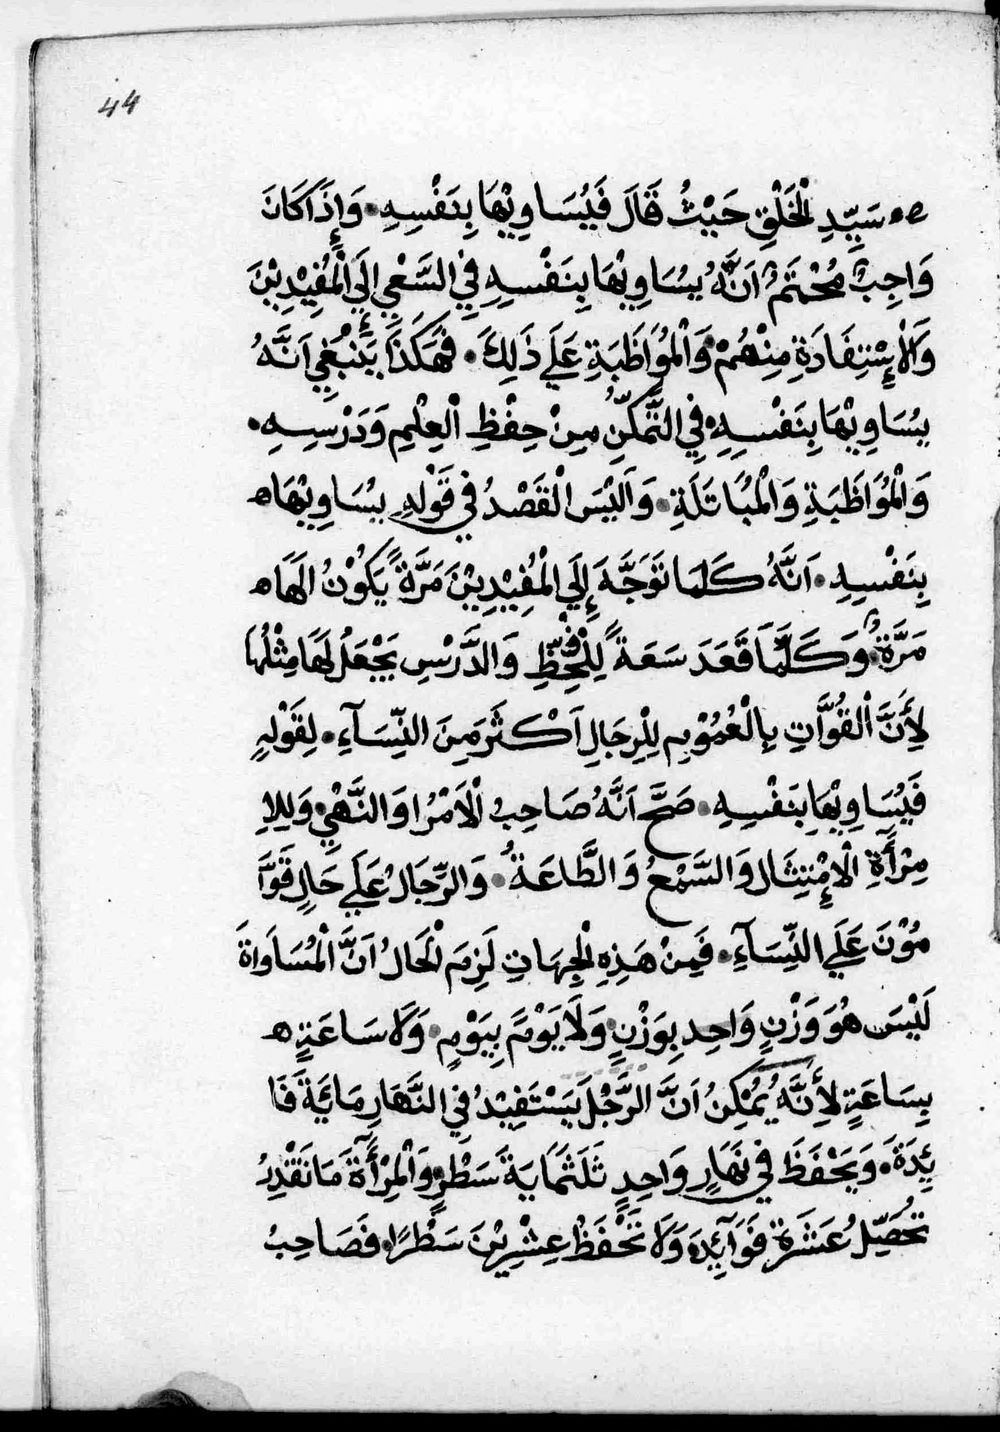 44
سَيِّدِ الْخَلْقِ حَيْثُ قَالَ فَيُسَاوِيْهَا بِنَفْسِهِ. وَإِذَا كَانَ
وَاجِبٌ مُحْتَمٌ اَنَّهُ يُسَاوِيْهَا بِنَفْسِهِ فِي السَّعْيِ اِلَي الْمُفِيْدِيْنَ
وَالْاِسْتِفَادَةِ مِنْهُمْ وَالْمُوَاظَبَةِ عَلَي ذَلِكَ. فَهَكَذَا يَنْبَغِي اَنَّهُ
يُسَاوِيْهَا بِنَفْسِهِ فِي التَّمَكُّنِ مِنْ حِفْظِ الْعِلْمِ وَدَرْسِهِ.
وَالْمُوَاظَبَةِ وَالْمُبَاتَلَةِ. وَاَلَيْسَ الْقَصْدُ فِي قَوْلِهِ يُسَاوِيْهَا
بِنَفْسِهِ. اَنَّهُ كَلَمَا تَوَجَّهَ اِلَي الْمُفِيْدِيْنَ مَرَّةً يَكُوْنُ الَهَا
مَرَّةً وَكَلَّمَا قَعَدَ سَعَةً لِلْحِفْظِ وَالدَّرْسِ يَجْعَلُ لَهَا مِثْلُهَا
لِأَنَّ الْقُوَّاتِ بِالْعُمُوْمِ لِلْرِجَالِ اَكْثَرَ مِنَ النِّسَآءِ. لِقَوْلِهِ
فَيُسَاوِيْهَا بِنَفْسِهِ. صَحَّ اَنَّهُ صَاحِبُ الْاَمْرُ اوَالنَّهْيِ وَلِلاِ
مِرْأَةِ الْاِمْتِثَال وَالسَّمْعُ وَالطَّاعَةُ. وَالرِّجَالُ عَلَي حَالٍ قَوَّا
مُوْنَ عَلَي النِّسَآءِ. فَمِنْ هَذِهِ الْجِهَاتِ لَزِمَ الْحَالُ اَنَّ الْمُسَاوَاةَ
لَيْسَ هُوَ وَزْنٍ وَاحِدٍ بِوَزْنٍ وَلَا يَوْمً بِيَوْمٍ. وَلَا سَاعَةٍ
بِسَاعَةٍ لِأَنَّهُ يُمْكِنُ اَنَّ الرَّجُلَ يَسْتَفِيْدُ فِي النَّهَارِ مَائَةَ فَا
ئِدَةَ. وَيَحْفَظَ فِي نَهَارٍ وَاحِدٍ ثَلَثَمَايَةَ سَطْرٍ وَالْمِرْأَةَ مَا تَقْدِرُ
تُحَصِّلُ عَشَرَةَ فَوَآئِدَ وَلَا تَحْفَظُ عِشْرِيْنَ سَطْرًا. فَصَاحِبُ